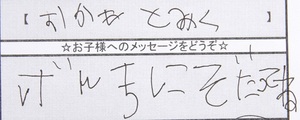 【 おかあ とみく 】
☆お子様へのメッセージをどうぞ☆
げんきにそだってね